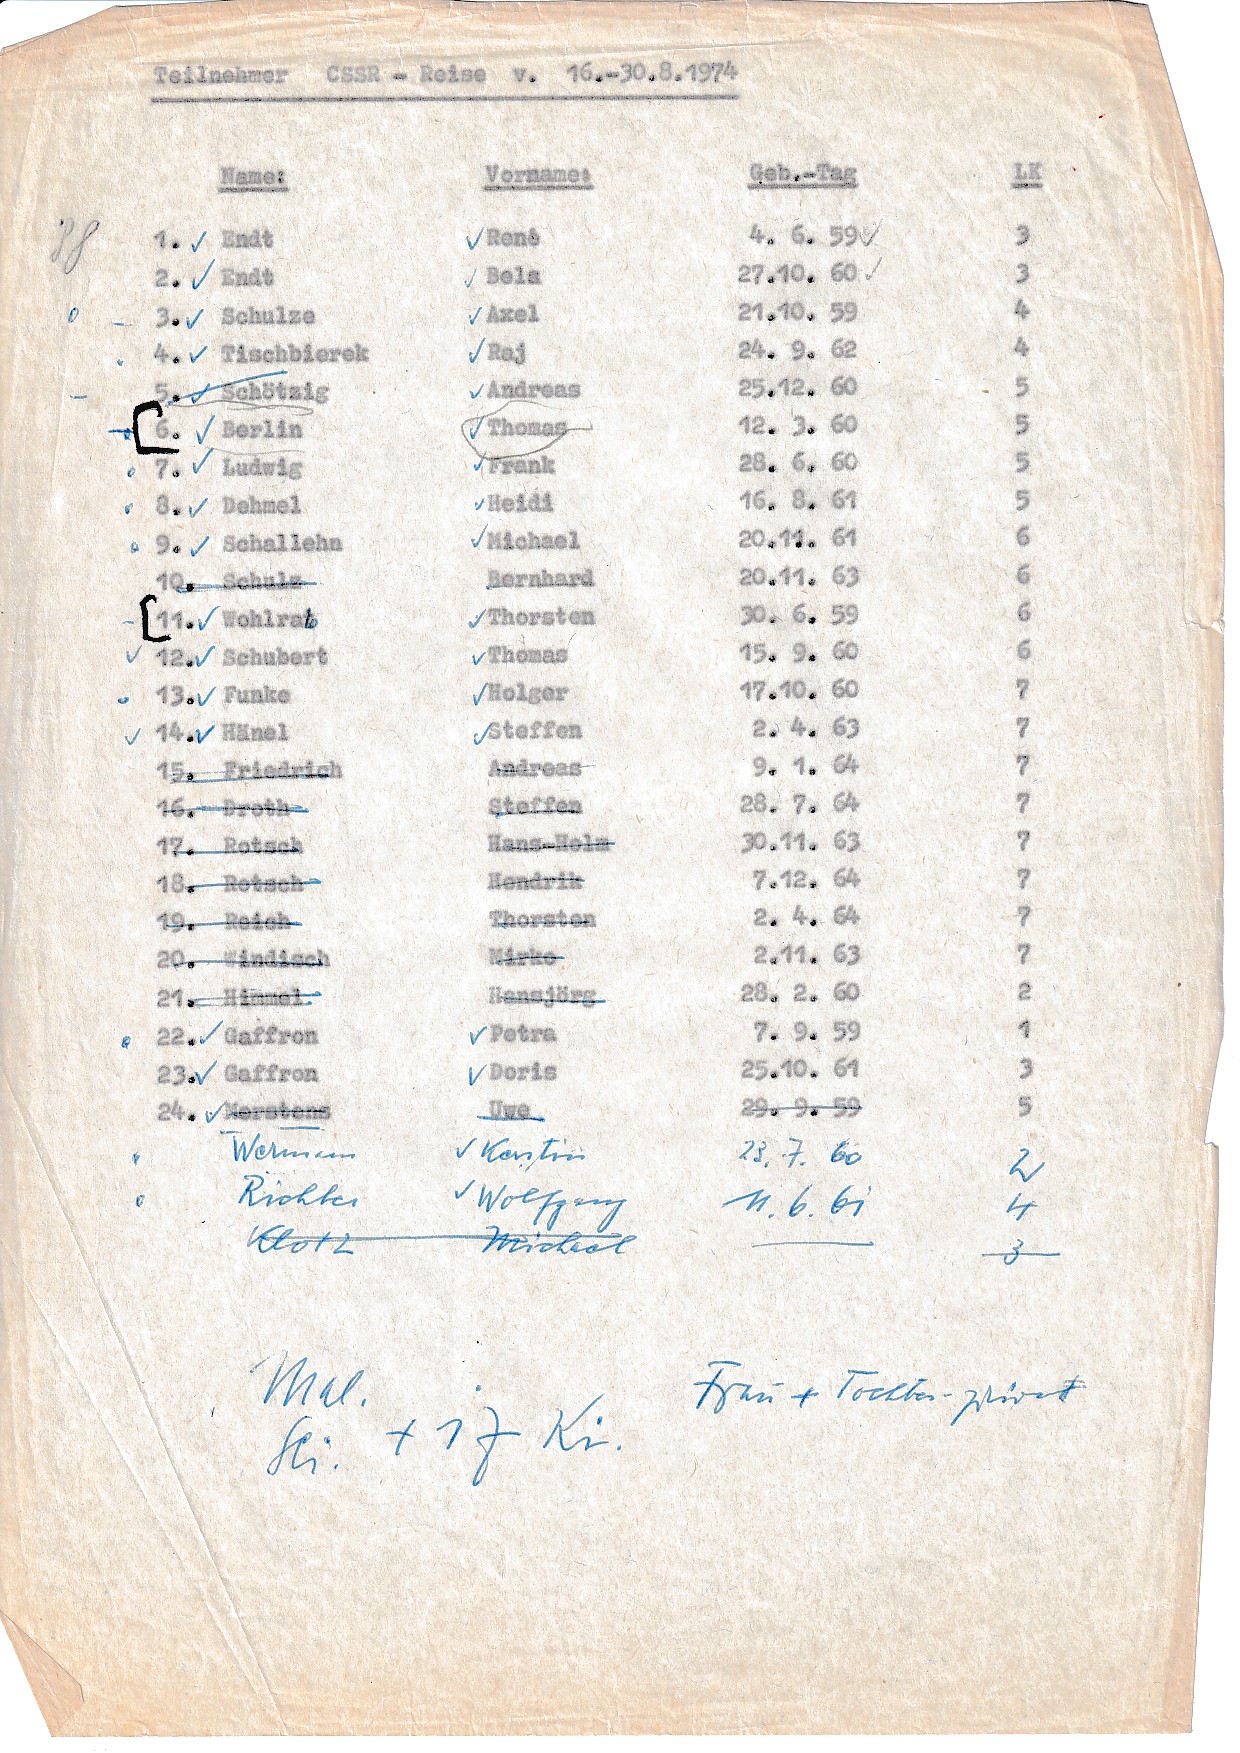 Teilnehmer CSSR - Reise v. 16.-30.8.1974
Name: Vorname: Geb.-Tag LK
1. Endt René 4. 6. 59 3
2. Endt Bela 27.10. 60 3
3. Schulze Axel 21.10. 59 4
4. Tischbierek Raj 24. 9. 62 4
5. Schötzig Andreas 25.12. 60 5
6. Berlin Thomas 12. 3. 60 5
7. Ludwig Frank 28. 6. 60 5
8. Dehmel Heidi 16. 8. 61 5
9. Schallehn Michael 20.11. 61 6
10. Schulz Bernhard 20.11. 63 6
11. Wohlrab Thorsten 30. 6. 59 6
12. Schubert Thomas 15. 9. 60 6
13. Funke Holger 17.10. 60 7
14. Hänel Steffen 2. 4. 63 7
15. Friedrich Andreas 9. 1. 64 7
16. Droth Steffen 28. 7. 64 7
17. Rotsch Hans-Holm 30.11. 63 7
18. Rotsch Hendrik 7.12. 64 7
19. Reich Thorsten 2. 4. 64 7
20. Windisch Mirko 2.11. 63 7
21. Himmel Hansjörg 28. 2. 60 2
22. Gaffron Petra 7. 9. 59 1
23. Gaffron Doris 25.10. 61 3
24. Uwe 29. 9. 59 5
Wermann Kerstin 23. 7. 60 2
Richter Wolfgang 11. 6. 61 4
Klotz Michael 3
Frau + Tochter - privat
+ 17 Ki.